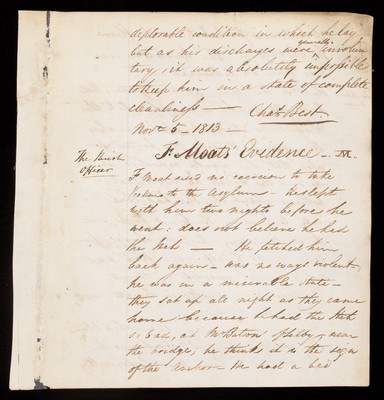 deplorable condition in which he lay
but as his discharges were generally involun
tary, it was absolutely impossible
to keep him in a state of complete
cleanliness — Chas Best
Novr 5 - 1813 —
F. Moats' Evidence —
The Parish
Officer
F Moat saw no occasion to take
to the Asylum - he slept
with him two nights before he
went: does not believe he had
the Itch — He fetched him
back again - was no ways violent -
he was in a miserable state -
they sat up all night as they came
home because he had the Itch
so bad, at near
the bridge, he thinks it is the sign
of the Anchor - He had a bed